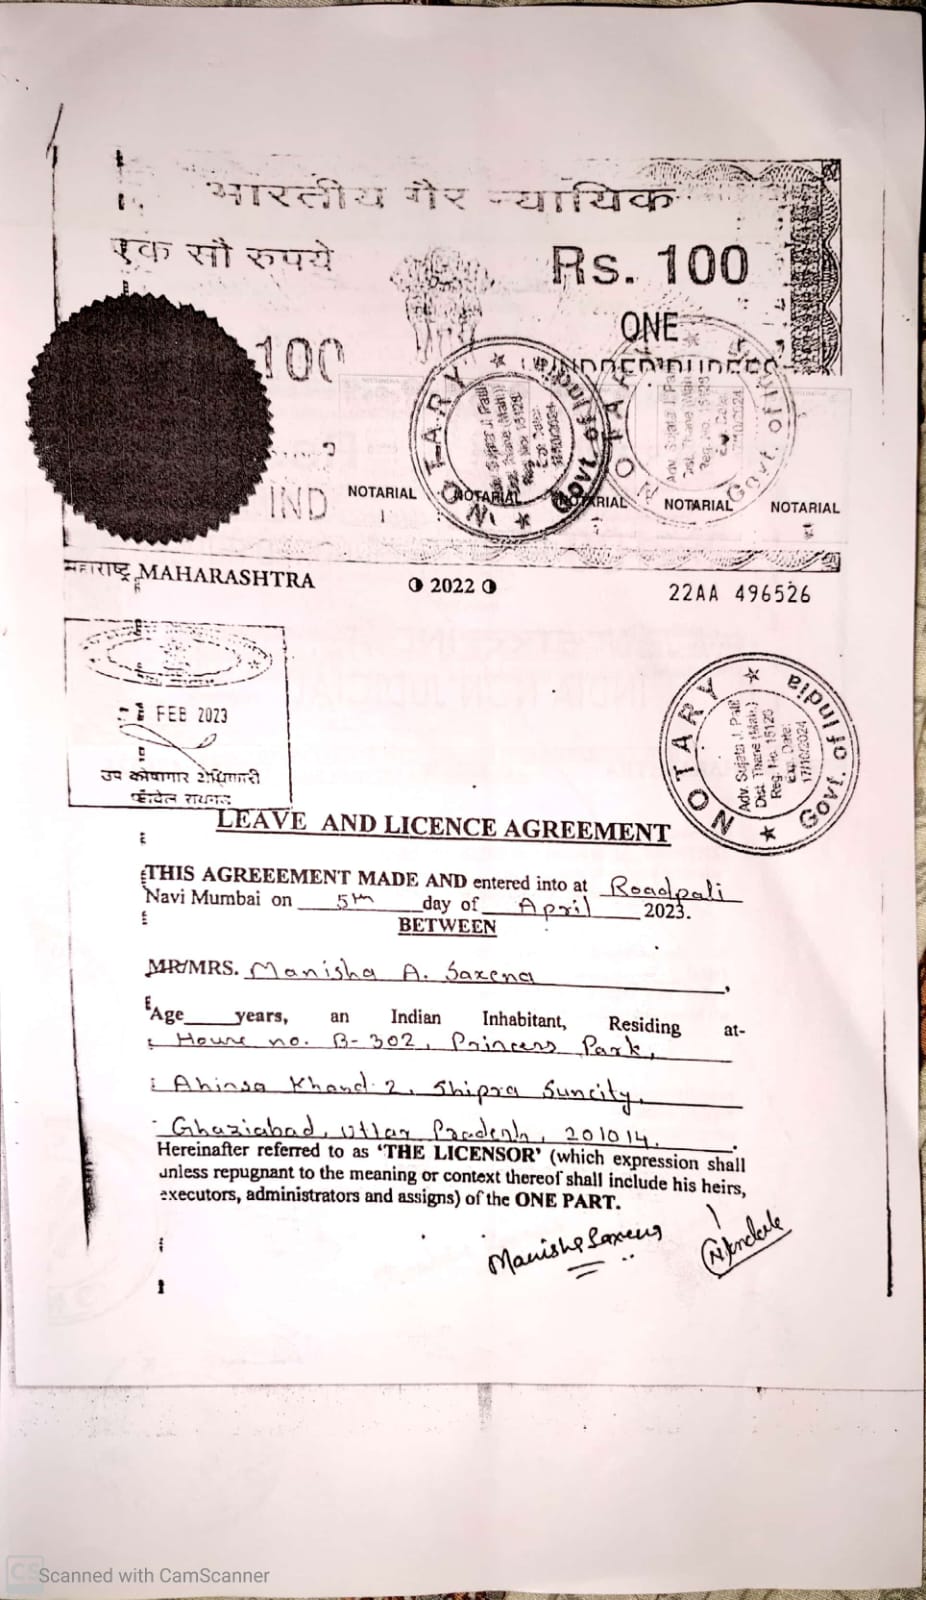 भारतीय गैर न्यायिक
एक सौ रुपये
Rs. 100
100
ONE
IND
NOTARIAL NOTARIAL NOTARIAL NOTARIAL NOTARIAL
NOTARY Govt. of India
Reg. No. 15128
17/10/2024
NOTARY Govt. of India
Adv. Sujata J. Patil
Dist. Thane (Mah.)
Reg. No. 15128
Exp. Date:
17/10/2024
महाराष्ट्र MAHARASHTRA
2022
22AA 496526
FEB 2023
उप कोषागार
रायगड
NOTARY Govt. of India
Adv. Sujata J. Patil
Dist. Thane (Mah.)
Reg. No. 15128
Exp. Date:
17/10/2024
LEAVE AND LICENCE AGREEMENT
THIS AGREEEMENT MADE AND entered into at Roadpali
Navi Mumbai on 5th day of April 2023.
BETWEEN
MR/MRS. Manisha A. Saxena,
Age years, an Indian Inhabitant, Residing at-
House no. B-302, Princess Park,
Ahinsa Khand-2, Shipra Suncity,
Ghaziabad, Uttar Pradesh, 201014.
Hereinafter referred to as ‘THE LICENSOR’ (which expression shall
unless repugnant to the meaning or context thereof shall include his heirs,
executors, administrators and assigns) of the ONE PART.
Manisha Saxena
CS Scanned with CamScanner